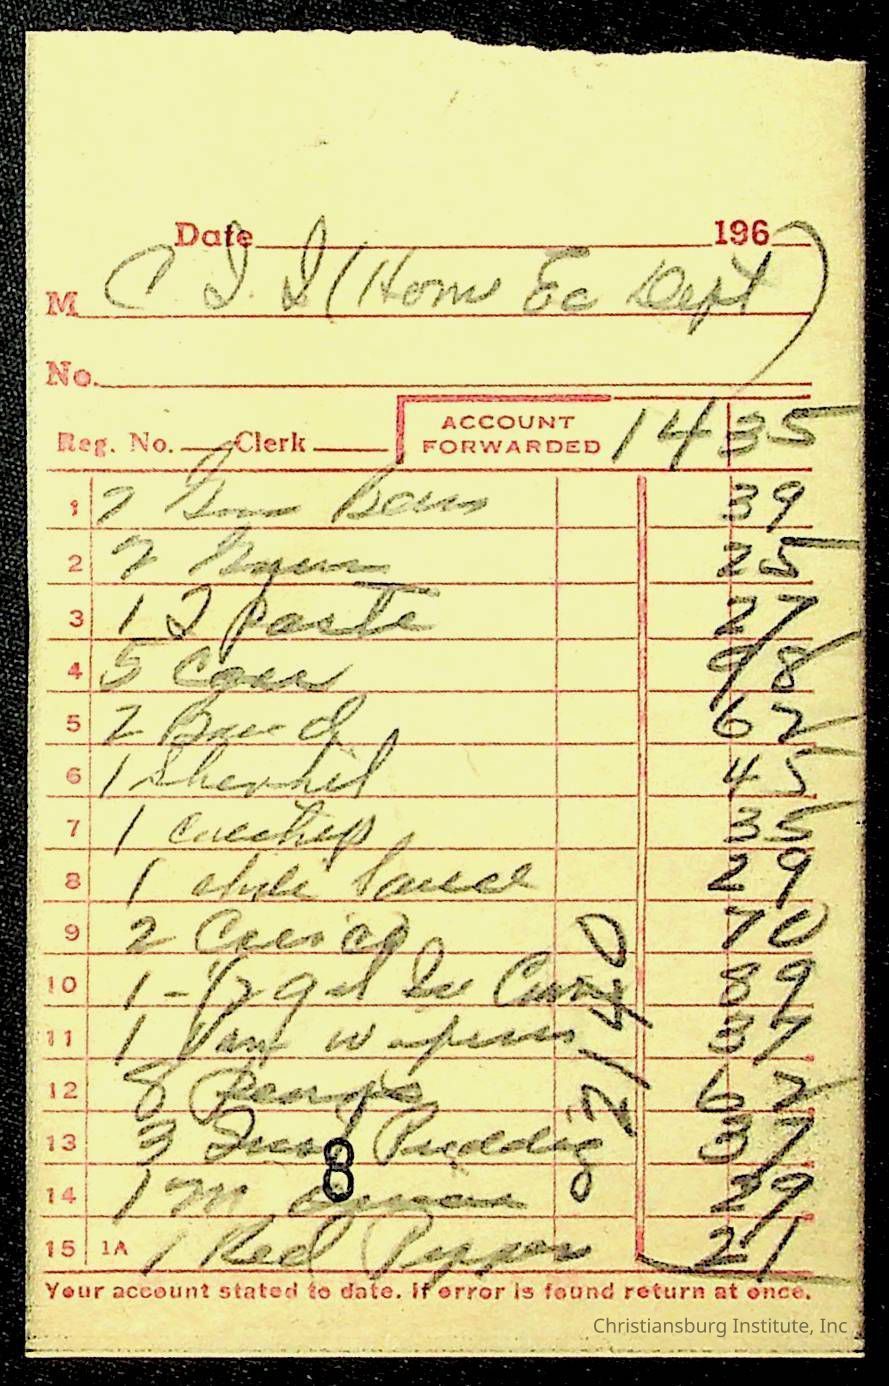 Date 196
M C I I (Home Ec Dept)
No.
Reg. No. Clerk ACCOUNT FORWARDED 14 35
1 2 Beans 39
2 2 25
3 1 T paste 27
4 5 98
5 2 Bread 62
6 1 45
7 1 35
8 1 Sauce 29
9 2 70
10 1 - 1/2 gal Ice 89
11 1 Van wafers 37
12 8 62
13 3 Inst Pudding 37
14 1 29
15 1A 1 Red Pepper 21
2140
8
Your account stated to date. If error is found return at once.
Christiansburg Institute, Inc